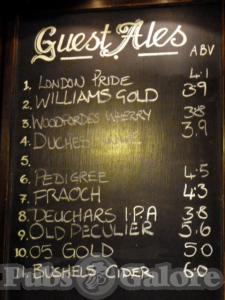 Guest Ales
ABV
1. LONDON PRIDE 4.1
2. WILLIAMS GOLD 3.9
3. WOODFORDES WHERRY 3.8
4. DUCHESS 3.9
5.
6. PEDIGREE 4.5
7. FRAOCH 4.3
8. DEUCHARS I.P.A 3.8
9. OLD PECULIER 5.6
10. 05 GOLD 5.0
11. BUSHELS CIDER 6.0
Pubs Galore